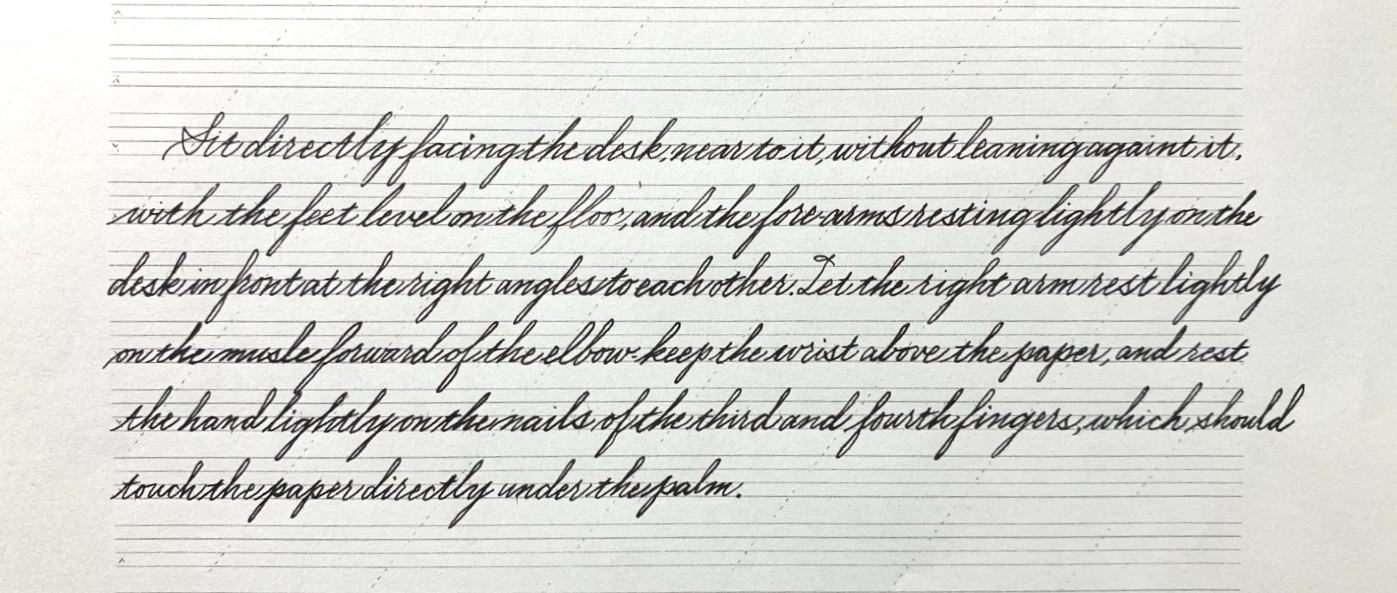 Sit directly facing the desk, near to it, without leaning againt it.
with the feet level on the floor, and the fore-arms resting lightly on the
desk in front at the right angles to each other. Let the right arm rest lightly
on the musle forward of the elbow-keep the wrist above the paper, and rest
the hand lightly on the nails of the third and fourth fingers, which should
touch the paper directly under the palm.